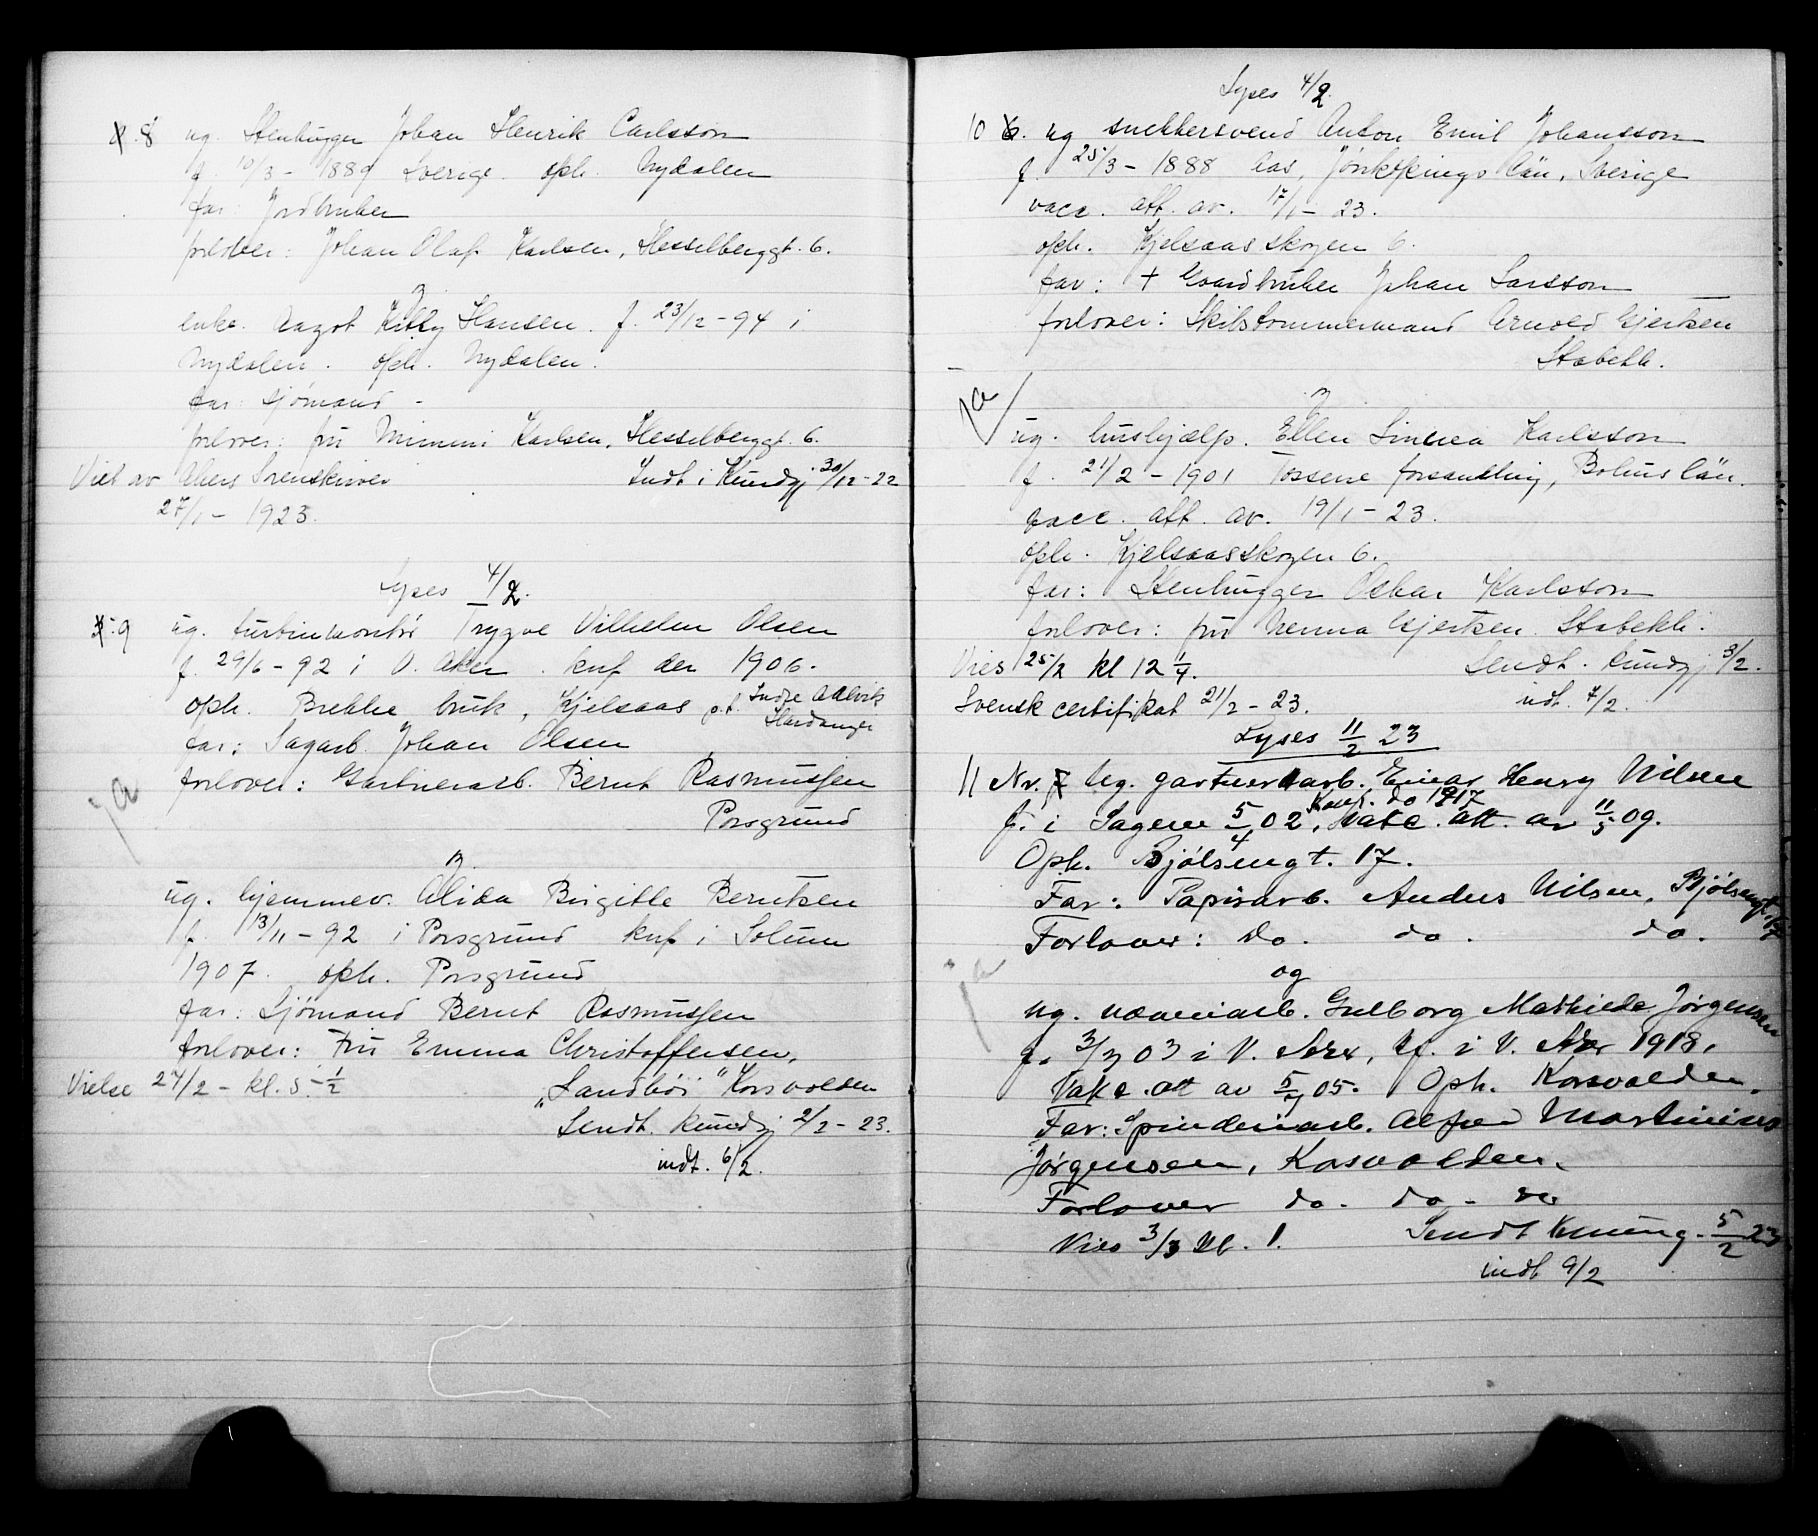 8 ug. Stenhugger Johan Henrik Carlsson
f. 10/3 - 1889 Sverige. oph. Nydalen
far: Jordbruker
forlover: Johan Olaf Karlsen, Hesselberggt. 6.
og
enke. Aagot Kitty Hansen. f. 23/12 - 94 i
Nydalen. oph. Nydalen.
far: Sjømand -
forlover: fru Mimmi Karlsen, Hesselberggt. 6.
Viet av Akers Sorenskriver Indt i Kundgj 30/12 - 22
27/1 - 1923.
Lyses 4/2.
9 ug. turbinmontør Trygve Vilhelm Olsen
f. 29/6 - 92 i V. Aker. knf der 1906.
oph. Brekke bruk, Kjelsaas p.t. Indre Aalvik
Hardanger
far: Sagarb. Johan Olsen
forlover: Gartnerarb. Bernt Rasmussen
Porsgrund
ja
og
ug. hjemmev. Alida Birgitte Berntsen
f. 13/11 - 92 i Porsgrund knf i Solum
1907. oph. Porsgrund
far: Sjømand Bernt Rasmussen
forlover: Fru Emma Christoffersen,
Vielse 24/2 - kl. 5 - 1/2 "Landbøi" Korsvolden
Sendt. kundgj 2/2 - 23.
indt. 6/2.
Lyses 4/2.
10 6. ug snekkersvend Anton Emil Johansson
f. 25/3 - 1888 Aas, Jönköpings län, Sverige
vacc. att. av. 17/1 - 23.
oph. Kjelsaasskogen 6.
far: + Gaardbruker Johan Larsson
forlover: Skibstømmermand Arnold Gjertsen
Stabekk.
ja
og
ug. hushjælp. Ellen Linnea Karlsson
f. 21/2 - 1901 Tossene forsamling, Bohus län.
vacc. att. av. 19/1 - 23.
oph. Kjelsaasskogen 6.
far: Stenhugger Oskar Karlsson
forlover: fru Nenna Gjertsen. Stabekk.
Vies 25/2 kl 12 1/4. Sendt. kundgj 3/2.
Svensk certifikat 21/2 - 23. indt. 7/2.
Lyses 11/2 23
11 Nr. 7 Ug. gartnerarb. Einar Henry Nilsen
Konf. do 1917
f. i Sagene 5/4 02, Vakc. att. av 11/5 09.
Oph. Bjølsengt. 17.
Far: Papirarb. Anders Nilsen, Bjølsengt. 17
Forlover: do. do. do.
ja
og
ug. væveriarb. Gulborg Mathilde Jørgensen
f. 3/3 03 i V. Aker, kf. i V. Aker 1918.
Vakc. att av 5/7 05. Oph. Korsvolden.
Far: Spinderiarb. Alfred Martinius
Jørgensen, Korsvolden.
Forlover do. do - do
Vies 3/3 kl. 1. Sendt Kunng. 5/2 23
indt 9/2